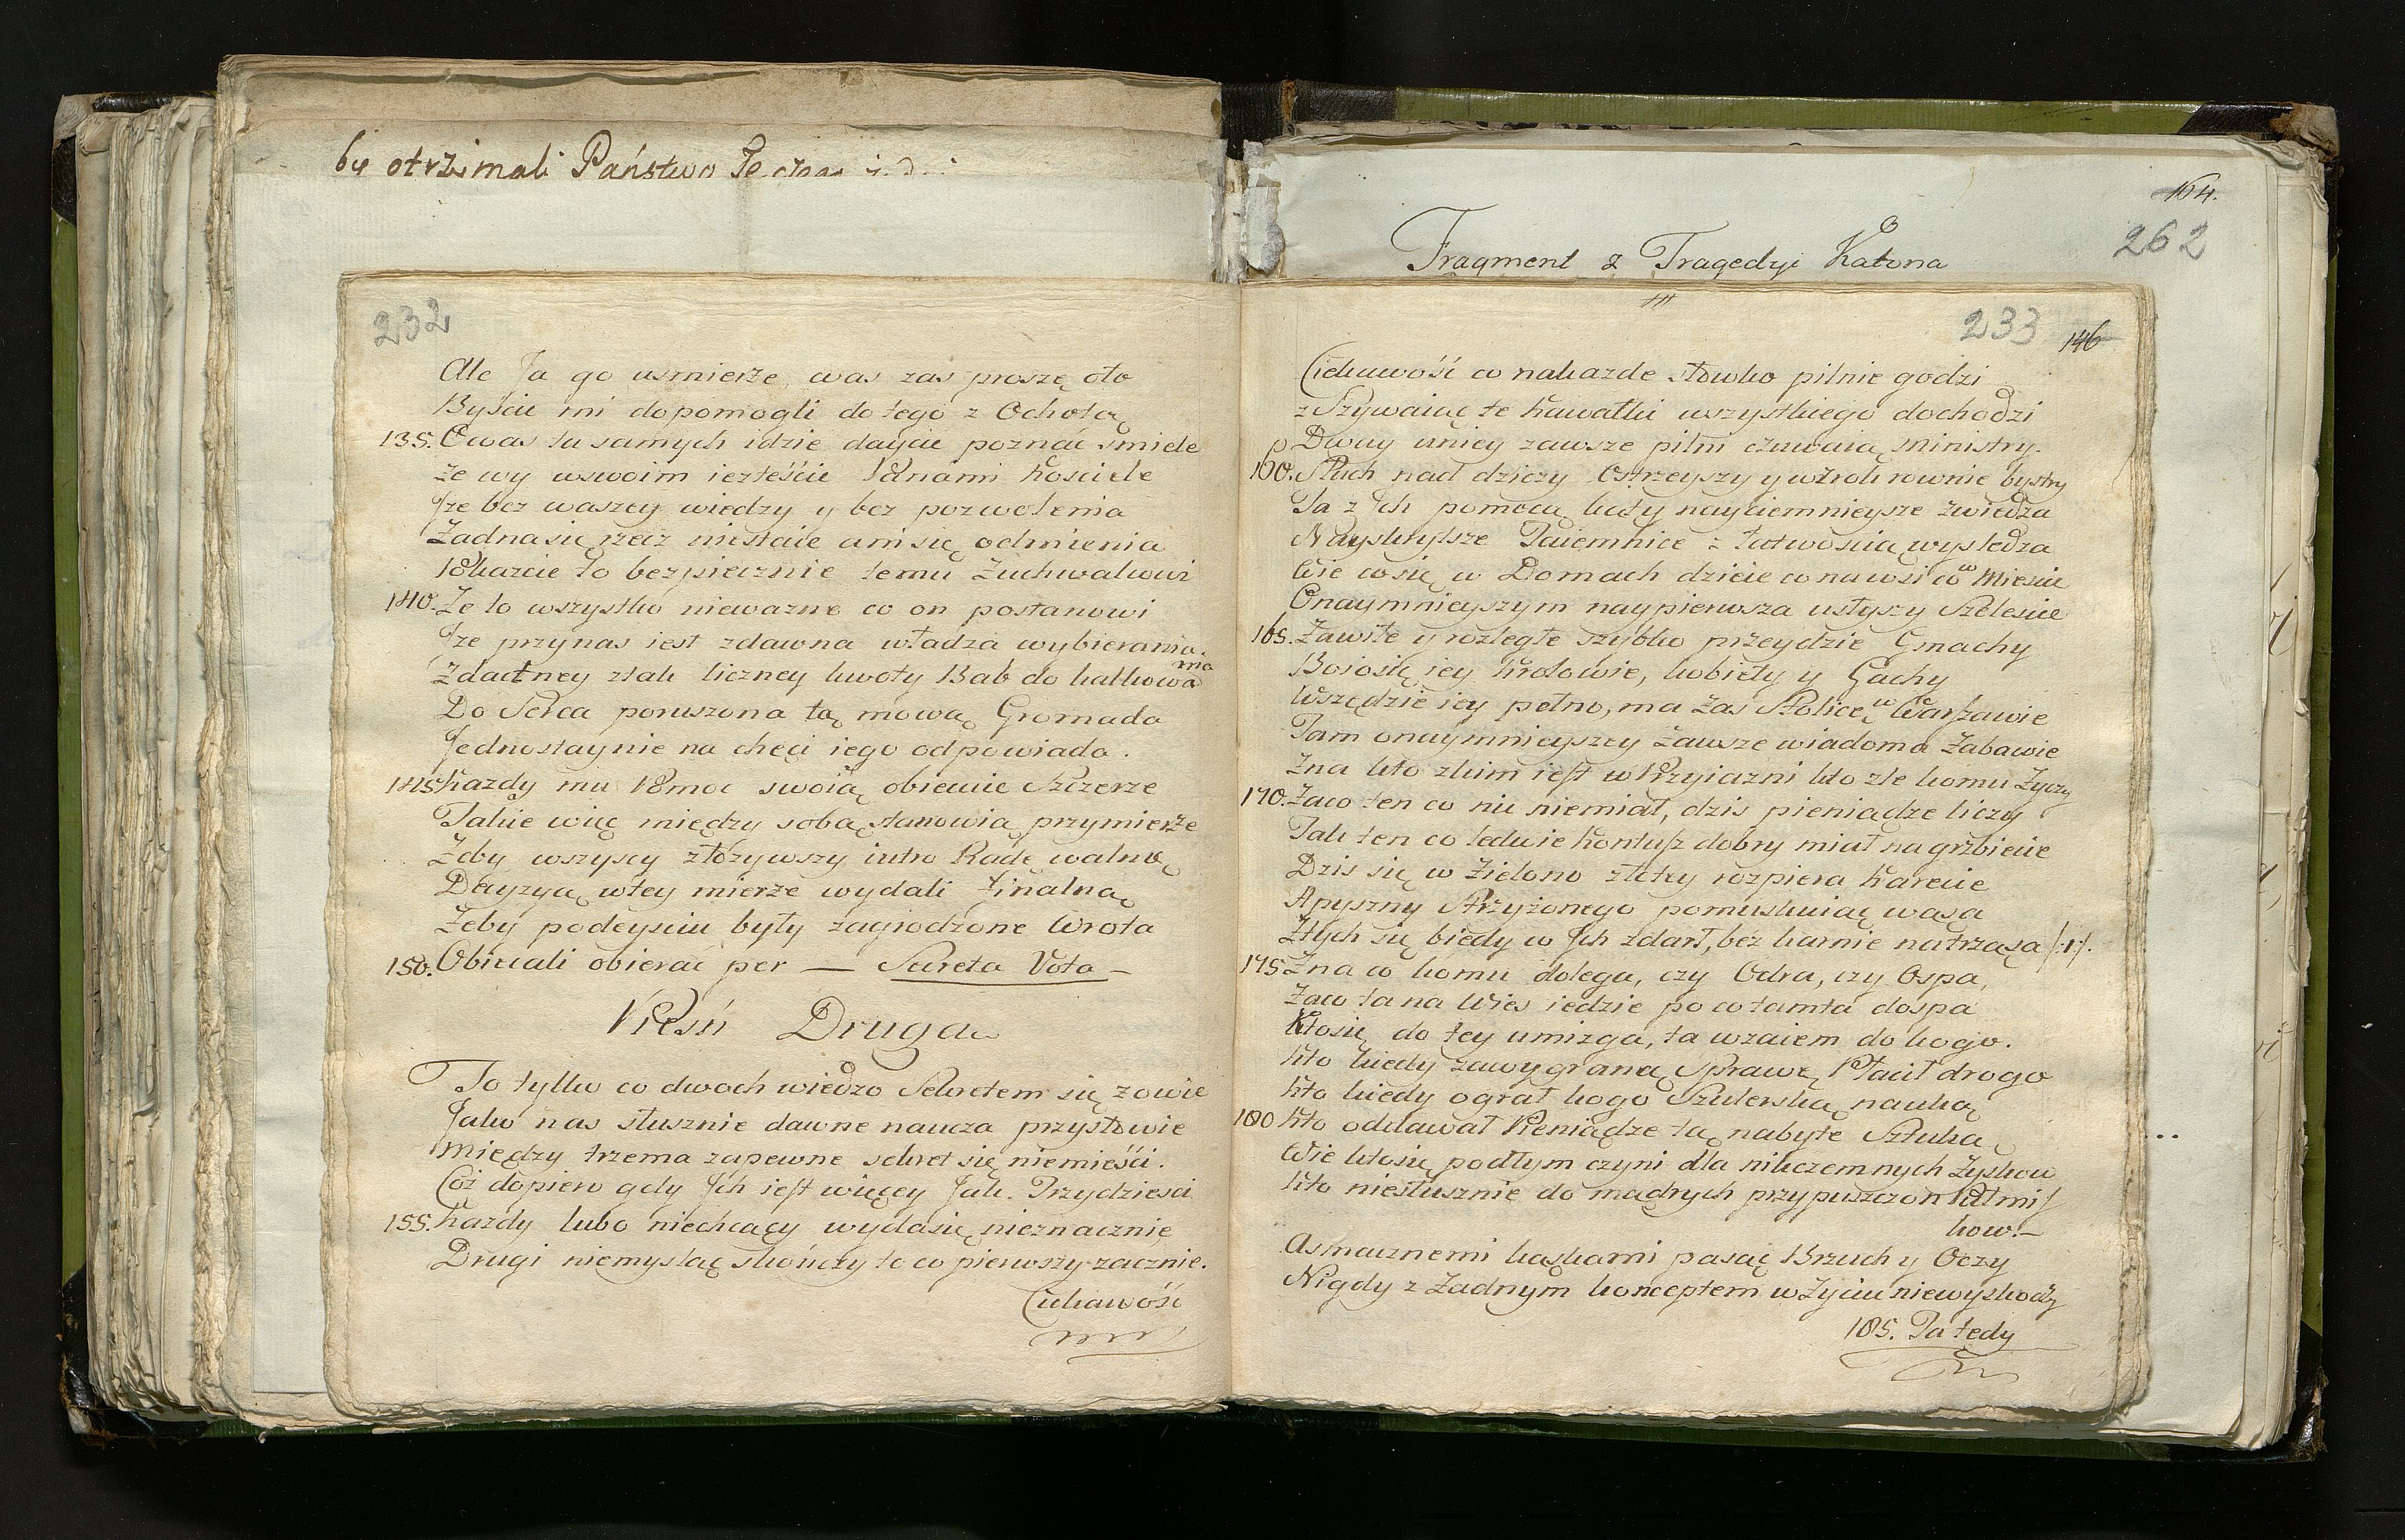 by otrzimali Państwo
232
Ale Ja go usmierze, was zas proszę oto
Byscie mi dopomogli do tego z Ochotą
135. O was tu samych idzie daycie poznać smiele
że wy wswoim iezteście Panami Kosciele
Jże bez waszey wiedzy y bez pozwolenia
Żadna się rzecz niestaie ani się odmienia
Pokazcie to bezpiecznie temu Zuchwalcowi
140. Że to wszystko niewazne co on postanowi
Jże przynas iest zdawna władza wybierania
Zdatney ztak liczney kwoty Bab do katkowa
nia
Do Serca poruszona tą mową Gromada
Jednostaynie na chęci iego odpowiada.
145 Kazdy mu Pomoc swoią obiecuie Szczerze
Takie więc między sobą stanowią przymierże
Żeby wszyscy złożywszy iutro Radę walną
Decyzyą wtey mierze wydali finalną
Żeby podeysciu były zagrodzone Wrota
150. Obiecali obierać per — Secreta Vota —
Pieśń Druga
To tylko co dwoch wiedzo Sekretem się zowie
Jako nas słusznie dawne naucza przysłowie
Między trzema zapewne sekret się niemieści.
Cóż dopiero gdy Jch iest więcey Jak Trzydziesci
155. Kazdy lubo niechcący wyda się nieznacznie
Drugi niemysląc skończy to co pierwszy zacznie.
Ciekawość
164.
262
Fragment z Tragedyi Katona
233
146
Ciekawość co nakazde słowko pilnie godzi
z Szywaiąc te kawałki wszystkiego dochodzi
p Dway uniey zawsze pilni czuwaią Ministry.
160. Słuch nad dziczy Ostrzeyszy y wzrok rownie bystry
Ta z Jch pomocą kąty nayciemnieysze zwiedza
Nayskrytsze Taiemnice z łatwoscią wysledza
Wie co się w Domach dzieie co na wsi co w Miescie
Onaymnieyszym naypierwsza usłyszy Szelescie
165. Zawiłe y rozległe szybko przeydzie Gmachy
Boiosię iey Krolowie, kobiety y Gachy
Wszędzie iey pełno, ma zas Stolicę w Warszawie
Tam onaymnieyszey zawsze wiadoma Zabawie
Zna kto zkim iest w Przyiazni kto zle komu życzy
170. Zaco ten co nic niemiał, dzis pieniądze liczy
Tak ten co ledwie Kontusz dobry miał na grzbiecie
Dzis się w Zielono złotey rozpiera Karecie
A pyszny Strzyżonego pomuskuiąc wąsa
Ztych się biedy co Jch zdarł, bez karnie natrząsa /:1:/.
175 Zna co komu dolega, czy Odra, czy Ospa,
Zaco ta na Wies iedzie po co tamta dospa
Ktosię do tey umizga, ta wzaiem do kogo.
Kto kiedy zawygraną Sprawę Płacił drogo
Kto kiedy ograł kogo Szulerską nauką
180 Kto oddawał Pieniądze tą nabyte Sztuką
Wie ktosię podłym czyni dla nikczemnych Zyskow
Kto niesłusznie do mądrych przypuszczon Połmis
kow.—
Asmacznemi kąskami pasąc Brzuch y Oczy
Nigdy z Żadnym konceptem w życiu niewyskoczy
185. Ta tedy